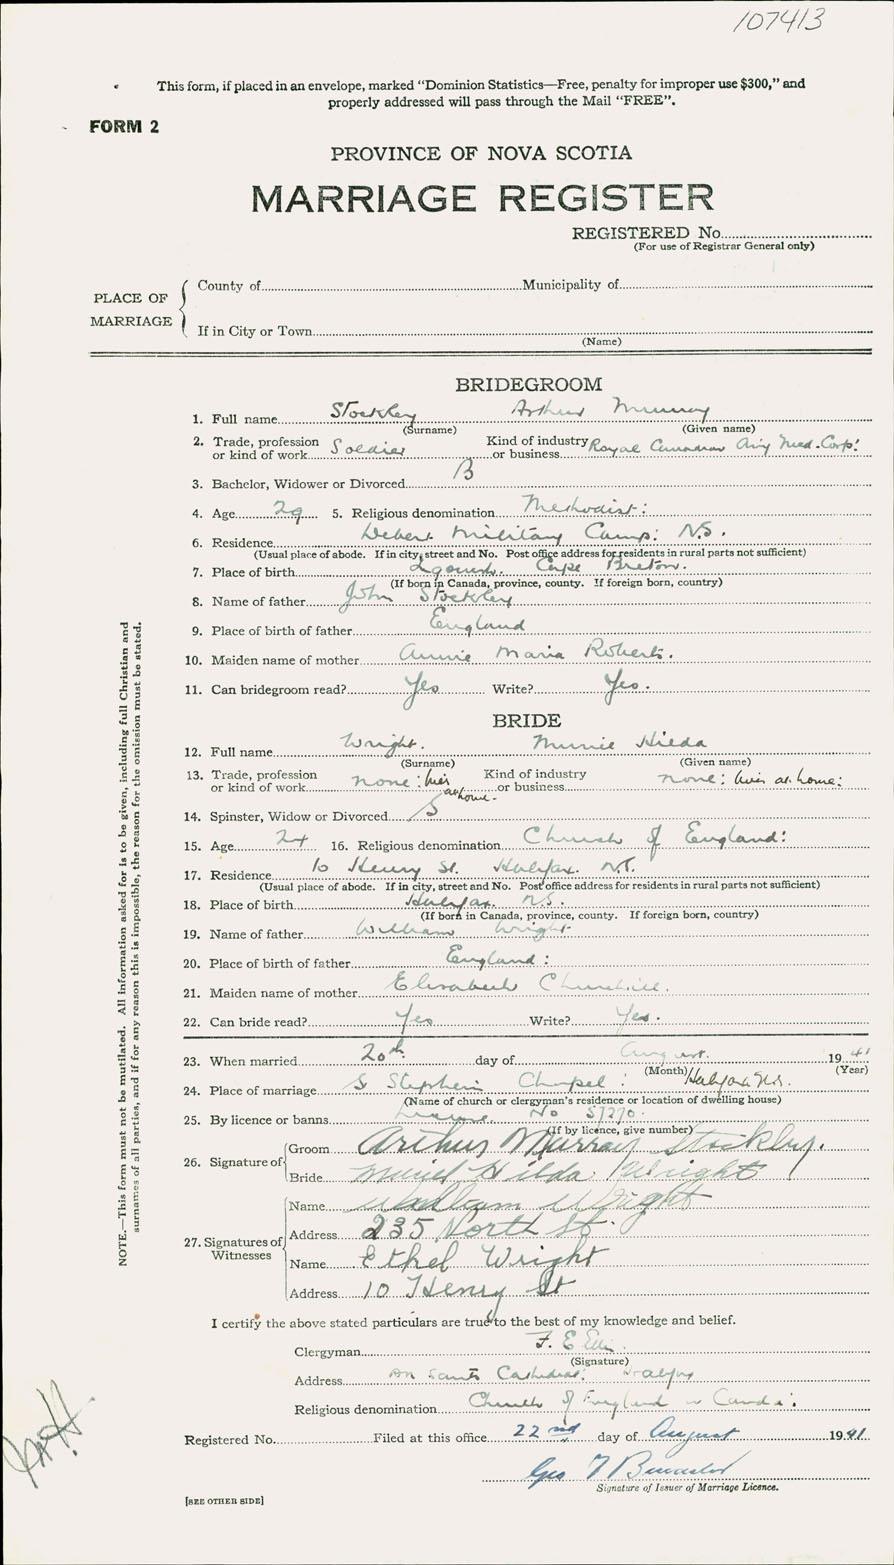 107413
This form, if placed in an envelope, marked "Dominion Statistics—Free, penalty for improper use $300," and
properly addressed will pass through the Mail "FREE".
FORM 2
PROVINCE OF NOVA SCOTIA
MARRIAGE REGISTER
REGISTERED No.
(For use of Registrar General only)
PLACE OF MARRIAGE
County of Municipality of
If in City or Town
(Name)
BRIDEGROOM
1. Full name Stockley Arthur Murray
(Surname) (Given name)
2. Trade, profession or kind of work Soldier Kind of industry or business Royal Canadian Army Med. Corps:
3. Bachelor, Widower or Divorced B
4. Age 29 5. Religious denomination Methodist:
6. Residence Debert Military Camp: N.S.
(Usual place of abode. If in city, street and No. Post office address for residents in rural parts not sufficient)
7. Place of birth Cape Breton.
(If born in Canada, province, county. If foreign born, country)
8. Name of father John Stockley
9. Place of birth of father England
10. Maiden name of mother Annie Maria Roberts.
11. Can bridegroom read? Yes Write? Yes.
BRIDE
12. Full name Wright. Hilda
(Surname) (Given name)
13. Trade, profession or kind of work none: lives at home. Kind of industry or business none: lives at home:
14. Spinster, Widow or Divorced S
15. Age 24 16. Religious denomination Church of England:
17. Residence 10 Henry St. Halifax. N.S.
(Usual place of abode. If in city, street and No. Post office address for residents in rural parts not sufficient)
18. Place of birth Halifax. N.S.
(If born in Canada, province, county. If foreign born, country)
19. Name of father William Wright
20. Place of birth of father England:
21. Maiden name of mother Elizabeth Churchill.
22. Can bride read? Yes Write? Yes.
23. When married 20th day of August. 1941
(Month) (Year)
24. Place of marriage S Stephen's Chapel: Halifax N.S.
(Name of church or clergyman's residence or location of dwelling house)
25. By licence or banns Licence No 57270.
(If by licence, give number)
26. Signature of Groom Arthur Murray Stockley.
Bride Muriel Hilda Wright
27. Signatures of Witnesses
Name William Wright
Address 235 North St.
Name Ethel Wright
Address 10 Henry St
I certify the above stated particulars are true to the best of my knowledge and belief.
Clergyman F. E.
(Signature)
Address All Saints Cathedral: Halifax
Religious denomination Church of England in Canada:
Registered No. Filed at this office 22nd day of August 1941
Geo
Signature of Issuer of Marriage Licence.
[SEE OTHER SIDE]
NOTE.—This form must not be mutilated. All information asked for is to be given, including full Christian and
surnames of all parties, and if for any reason this is impossible, the reason for the omission must be stated.